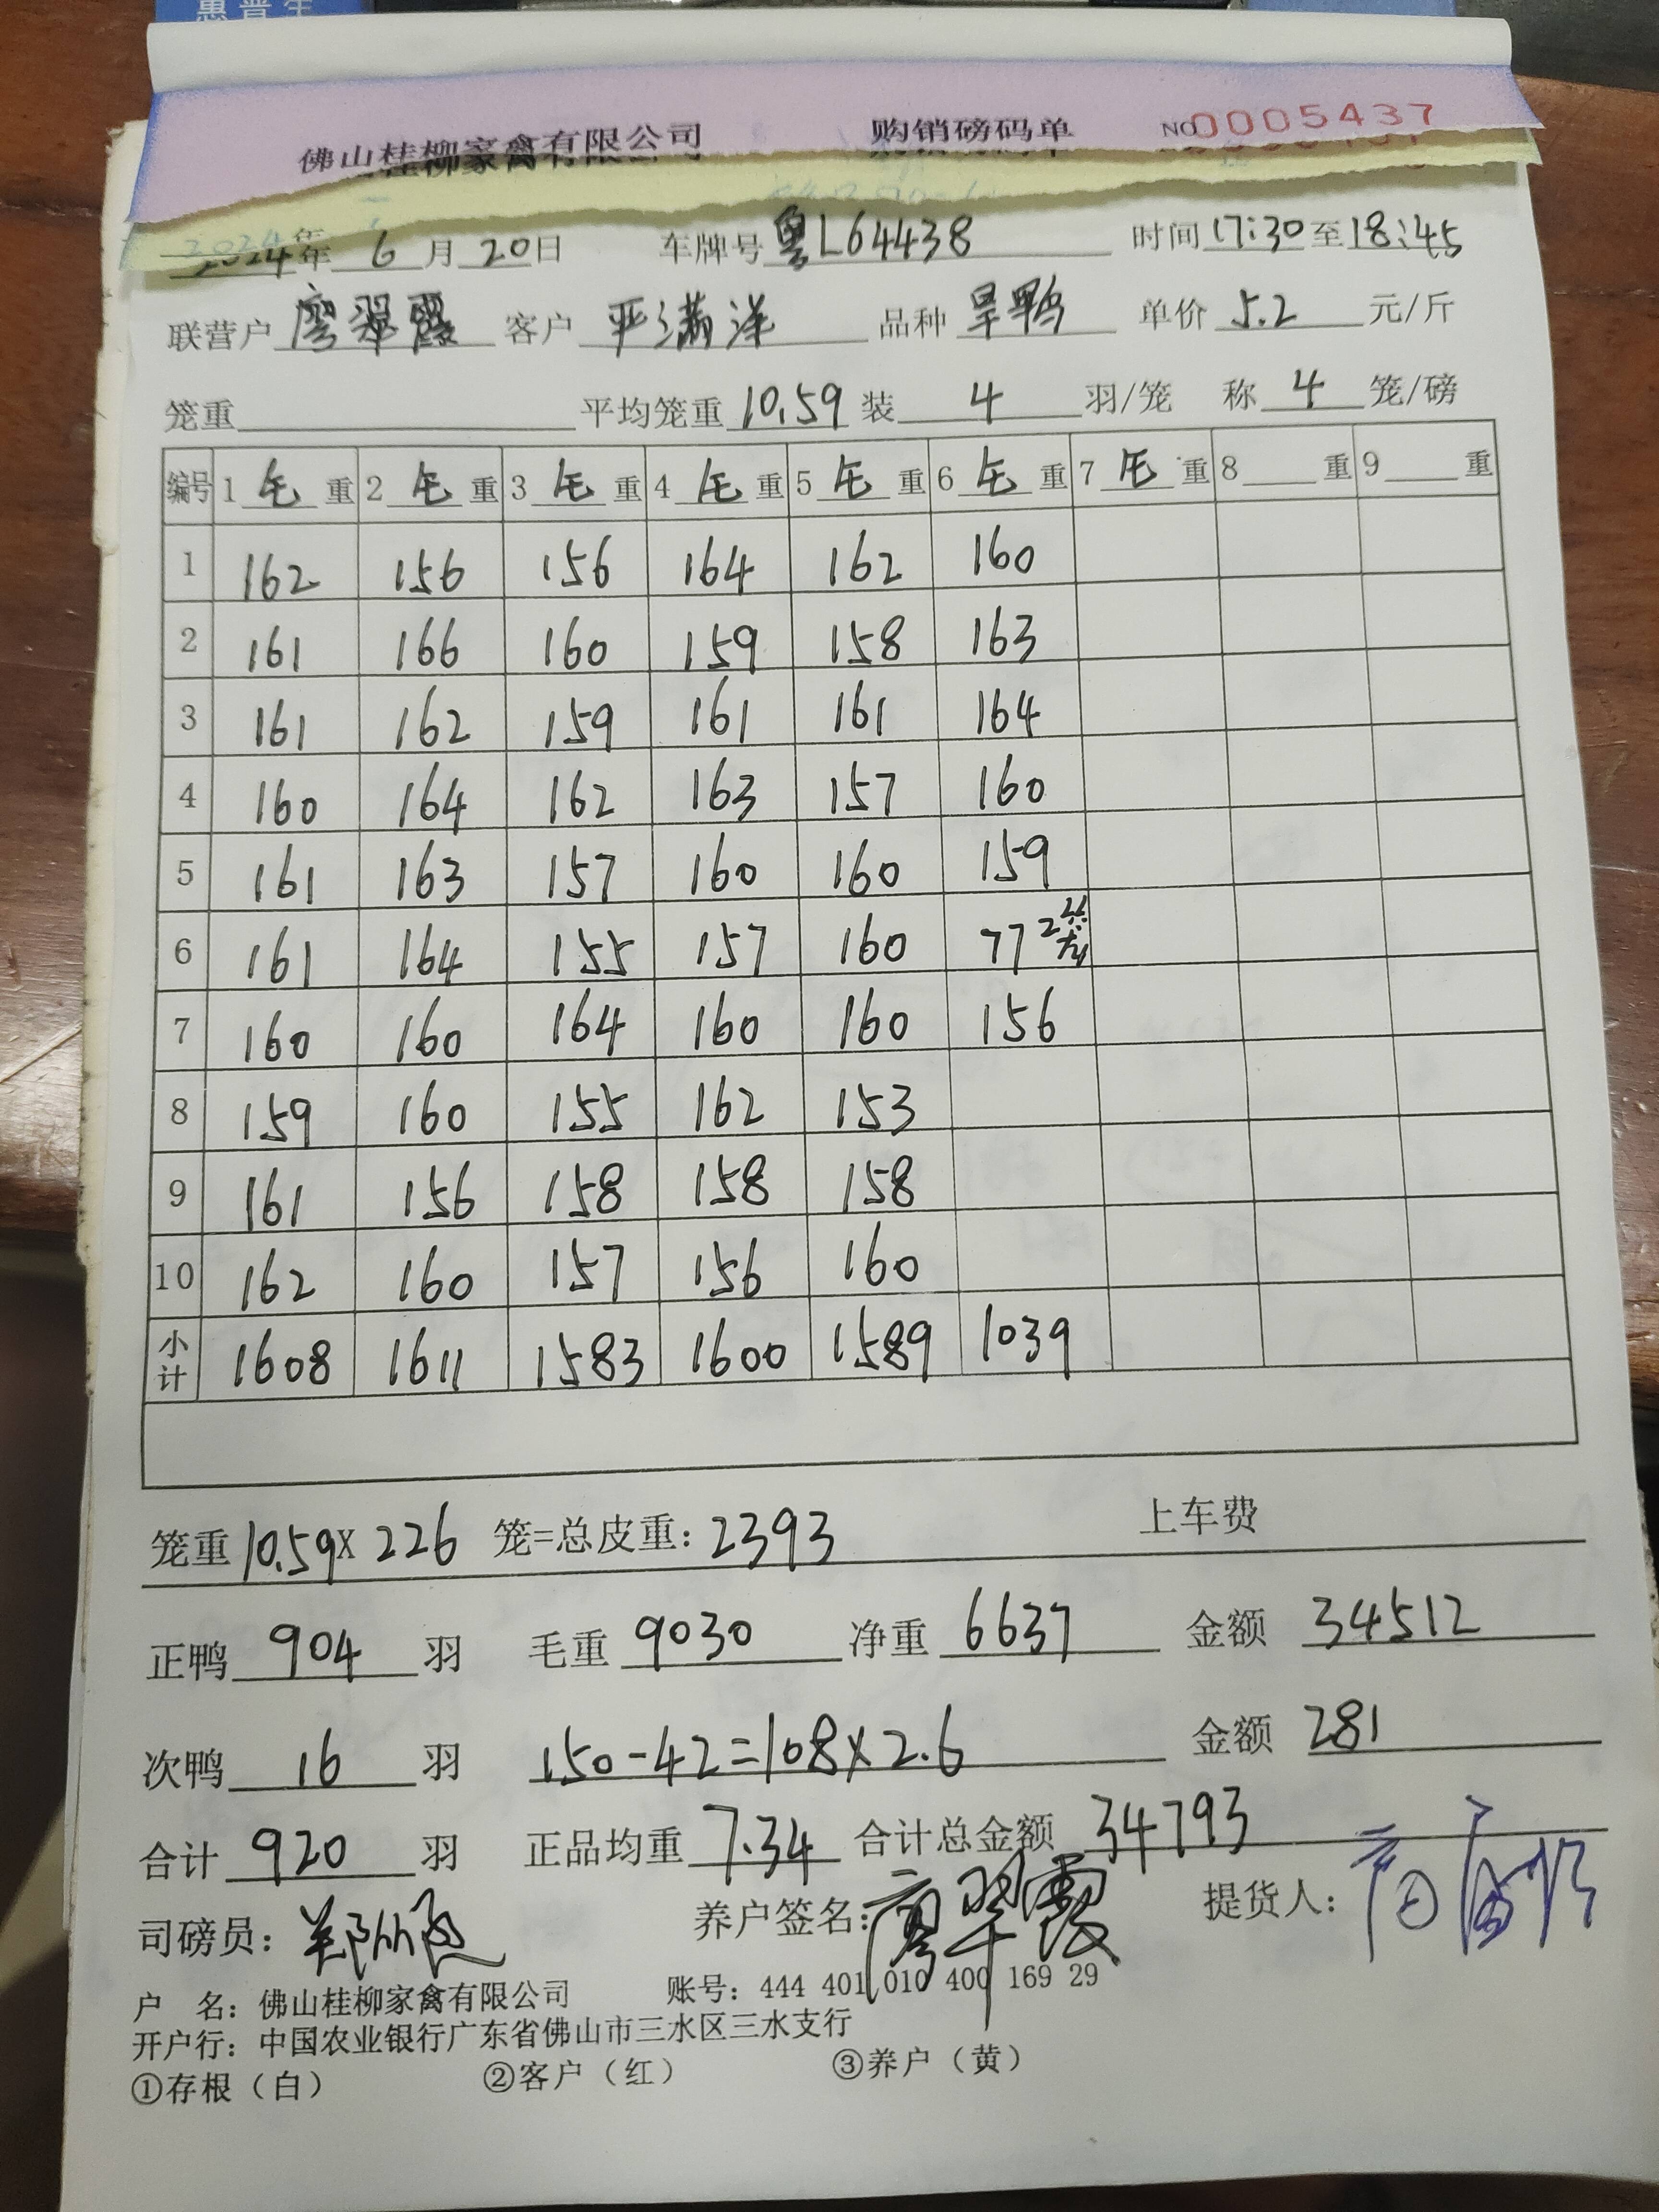 惠普生
佛山桂柳家禽有限公司 购销磅码单 NO 0005437
2024年 6月20日 车牌号 粤L64438 时间 17:30 至 18:45
联营户 廖翠霞 客户 严满洋 品种 旱鸭 单价 5.2 元/斤
笼重 平均笼重 10.59 装 4 羽/笼 称 4 笼/磅
编号 1 毛 重 2 毛 重 3 毛 重 4 毛 重 5 毛 重 6 毛 重 7 毛 重 8 重 9 重
1 162 156 156 164 162 160
2 161 166 160 159 158 163
3 161 162 159 161 161 164
4 160 164 162 163 157 160
5 161 163 157 160 160 159
6 161 164 155 157 160 77 2
7 160 160 164 160 160 156
8 159 160 155 162 153
9 161 156 158 158 158
10 162 160 157 156 160
小计 1608 1611 1583 1600 1589 1039
笼重 10.59 X 226 笼=总皮重: 2393 上车费
正鸭 904 羽 毛重 9030 净重 6637 金额 34512
次鸭 16 羽 150-42=108X2.6 金额 281
合计 920 羽 正品均重 7.34 合计总金额 34793
司磅员: 养户签名: 廖翠霞 提货人:
户 名: 佛山桂柳家禽有限公司 账号: 444 401 010 400 169 29
开户行: 中国农业银行广东省佛山市三水区三水支行
①存根（白） ②客户（红） ③养户（黄）